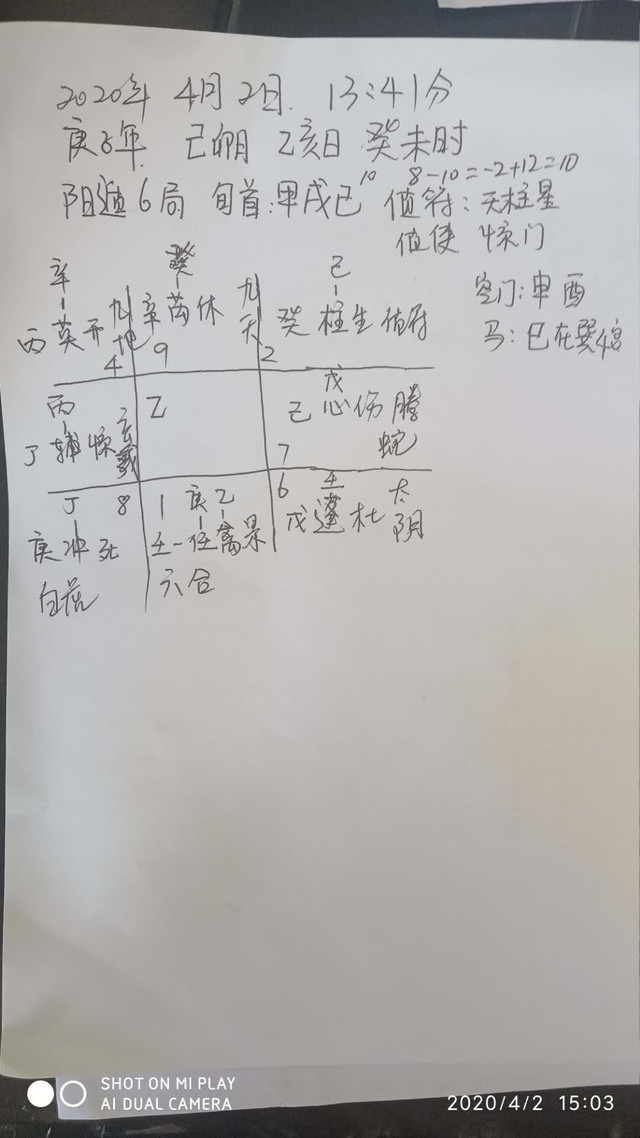 2020年 4月 2日. 13:41分
庚子年 己卯月 乙亥日 癸未时
10
8-10=-2+12=10
阳遁6局 旬首:甲戌己 10 值符:天柱星
值使 惊门
空门:申酉
马:巳在巽4宫
辛 癸 己
丙 英 开 九地 辛 芮 休 九天 癸 柱 生 值符
4 9 2
丙 戊
丁 辅 惊 玄武 乙 己 心 伤 腾蛇
7
丁 8 1 庚 乙 6 壬 太阴
庚 冲 死 壬-任 禽 景 戊 蓬 杜
白虎 六合
SHOT ON MI PLAY
AI DUAL CAMERA
2020/4/2 15:03